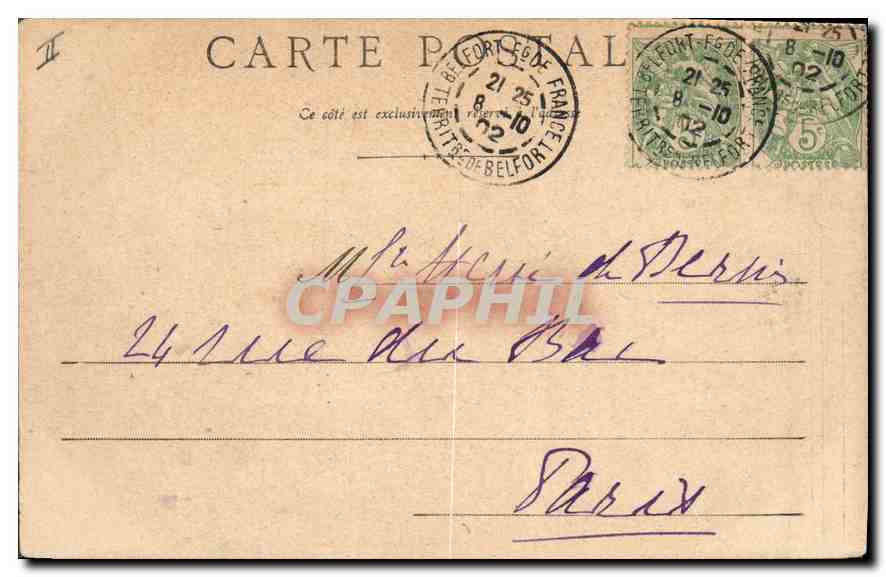 II
CARTE POSTALE
BELFORT-Fg DE FRANCE
21 25
8 -10
02
TERRITRE DE BELFORT
BELFORT-Fg DE FRANCE
21 25
8 -10
02
TERRITRE DE BELFORT
21 25
8 -10
02
5c
POSTES
Ce côté est exclusivement réservé à l'adresse
de Bernis
CPAPHIL
24 rue du Bac
Paris